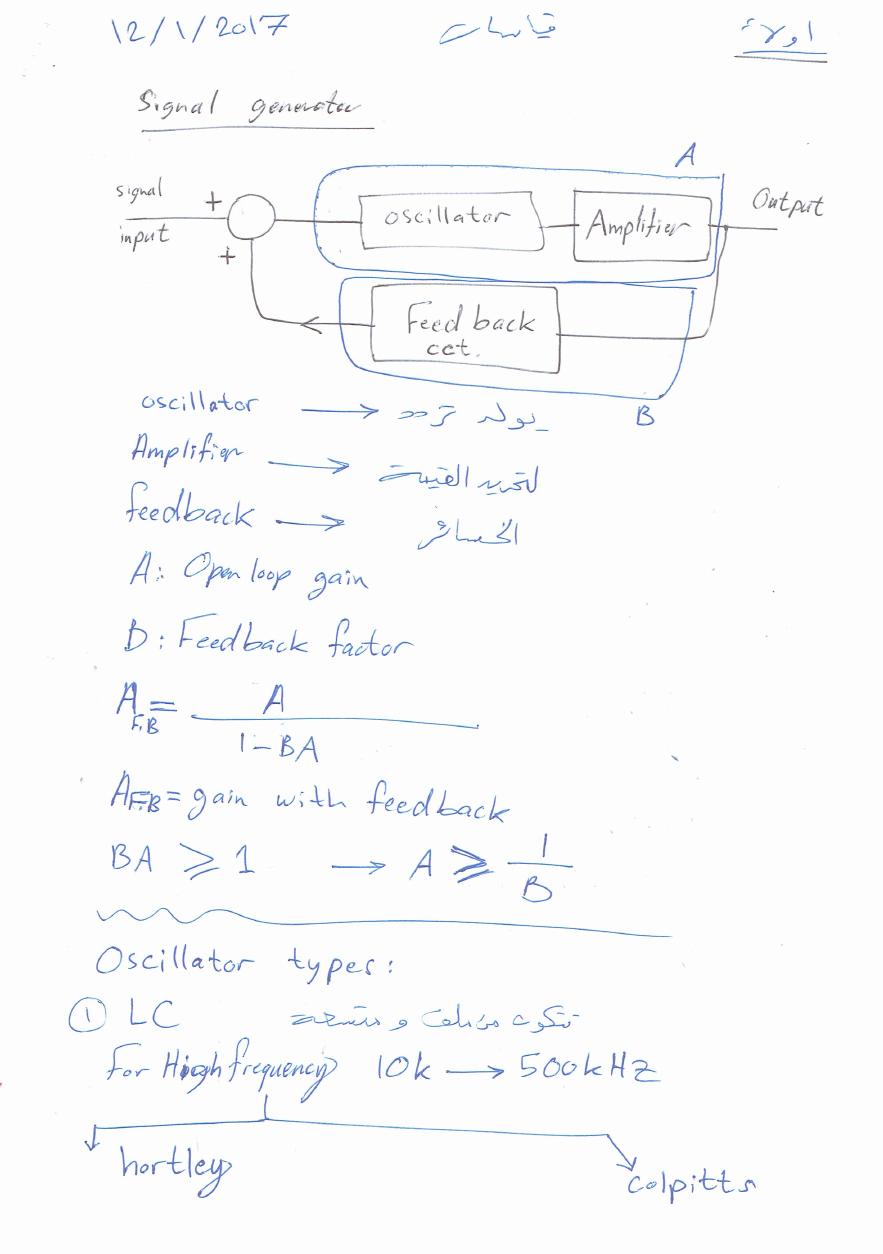 12/1/2017 قياسات اولاً
Signal generator
A
signal
input
+
+
oscillator
Amplifier
Output
Feed back
cct.
B
oscillator → يولد تردد
Amplifier → لتحديد القيمة
feedback → الخسائر
A: Open loop gain
B: Feedback factor
A F.B = A / 1-BA
AF.B = gain with feedback
BA ≥ 1 → A ≥ 1/B
Oscillator types:
① LC تتكون من ملف و متسعة
for High frequency 10k → 500kHz
hortley
colpitts